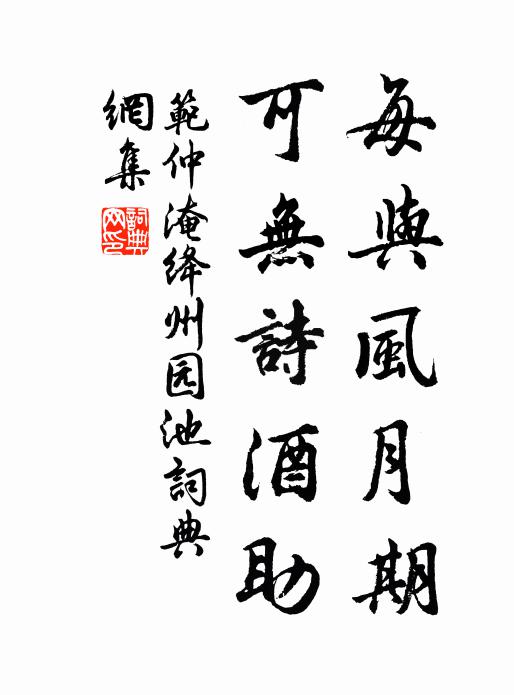 每與風月期
可無詩酒助
範仲淹絳州园池詞典
網集
詞典网印